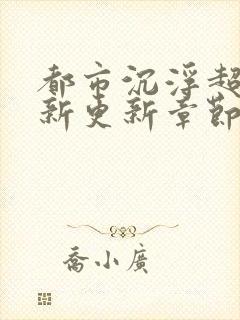 都市沉浮超
新更新章節
喬小廣